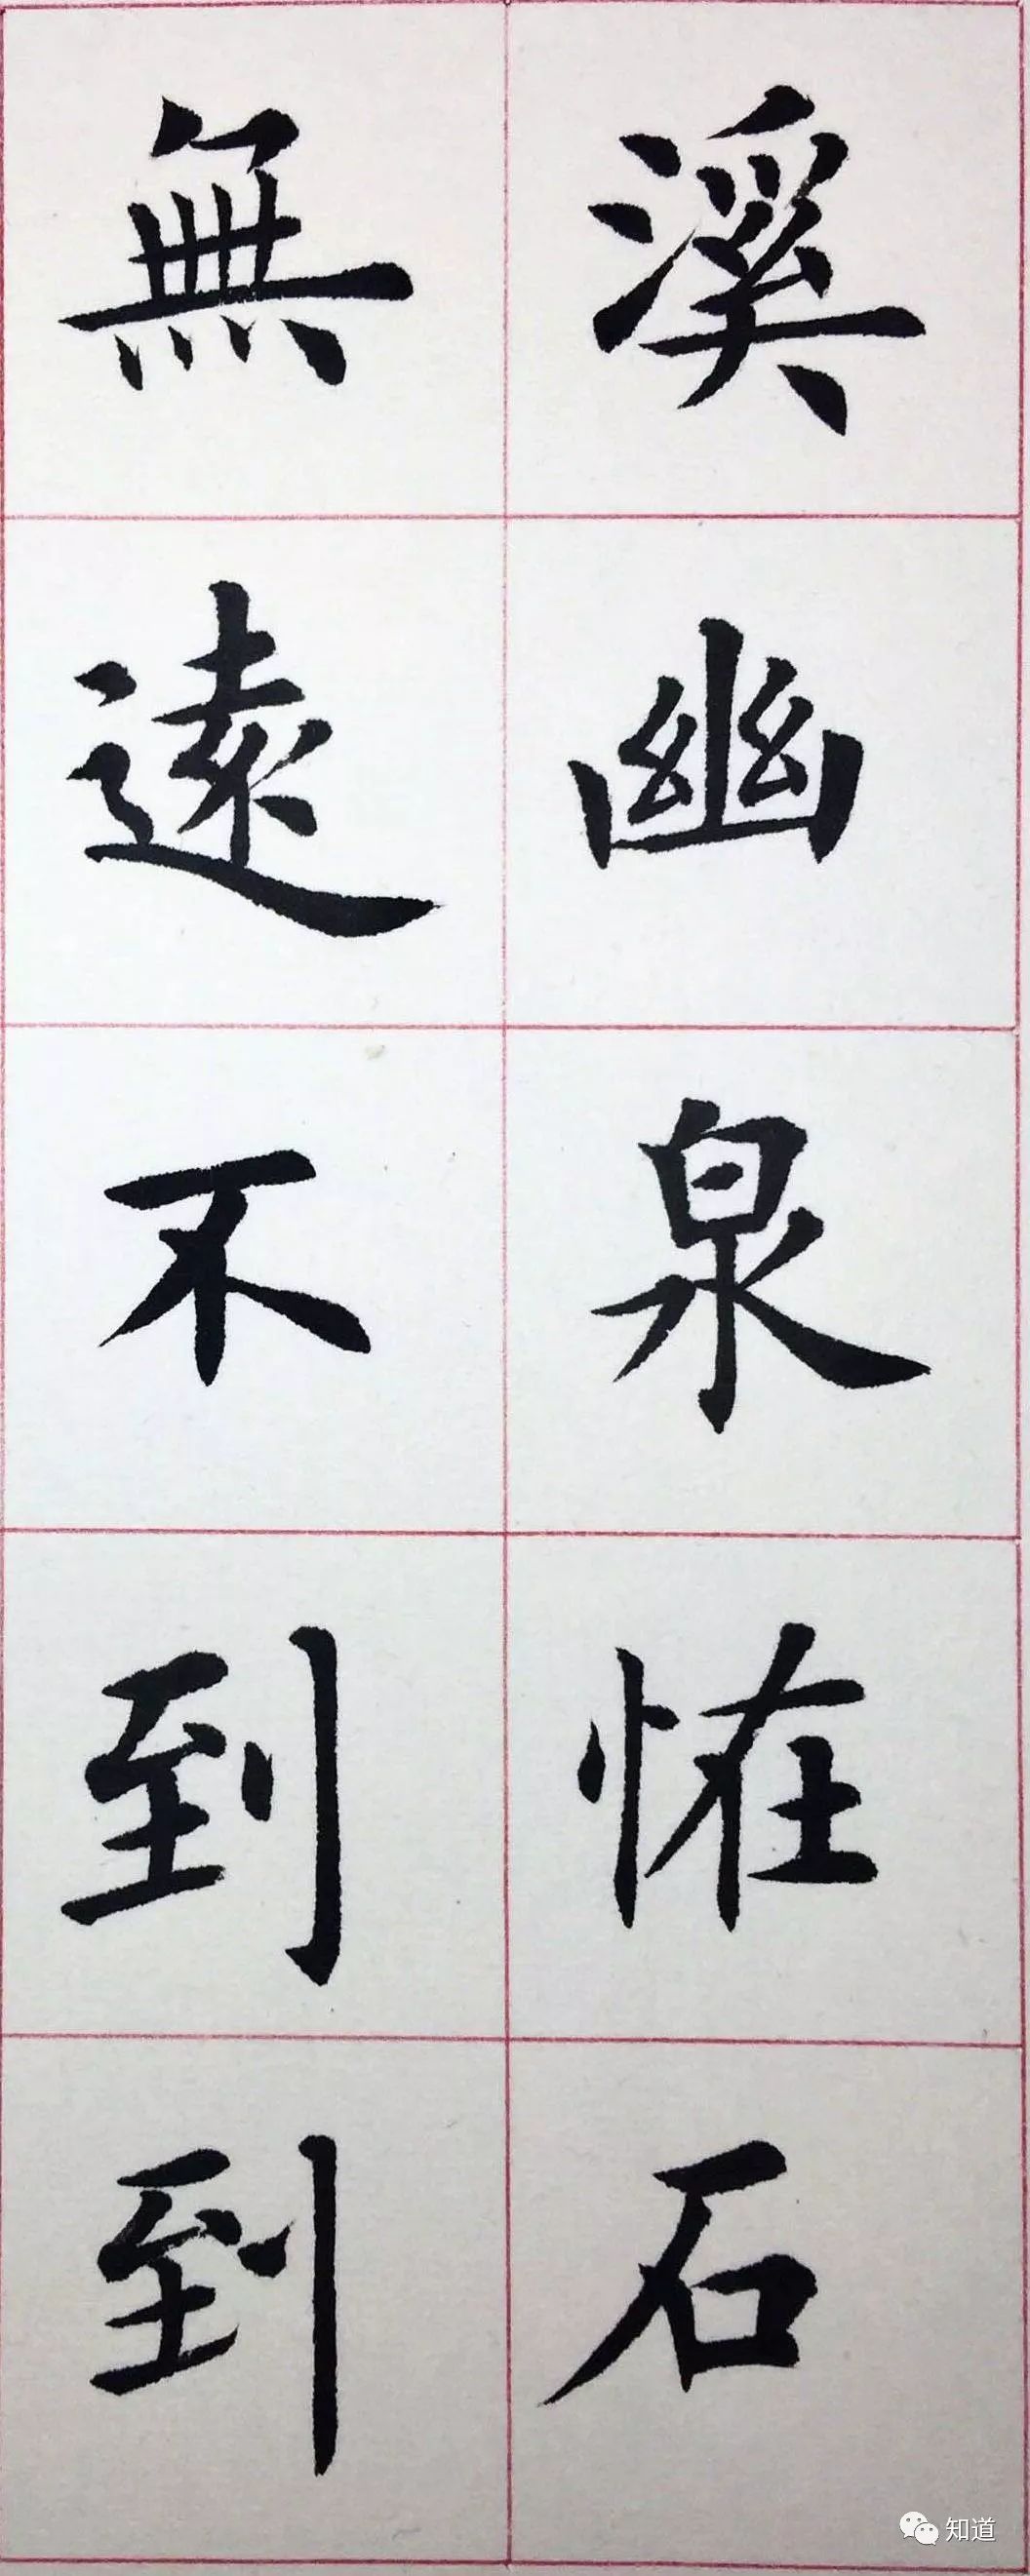 溪幽泉恠石
無遠不到到
知道